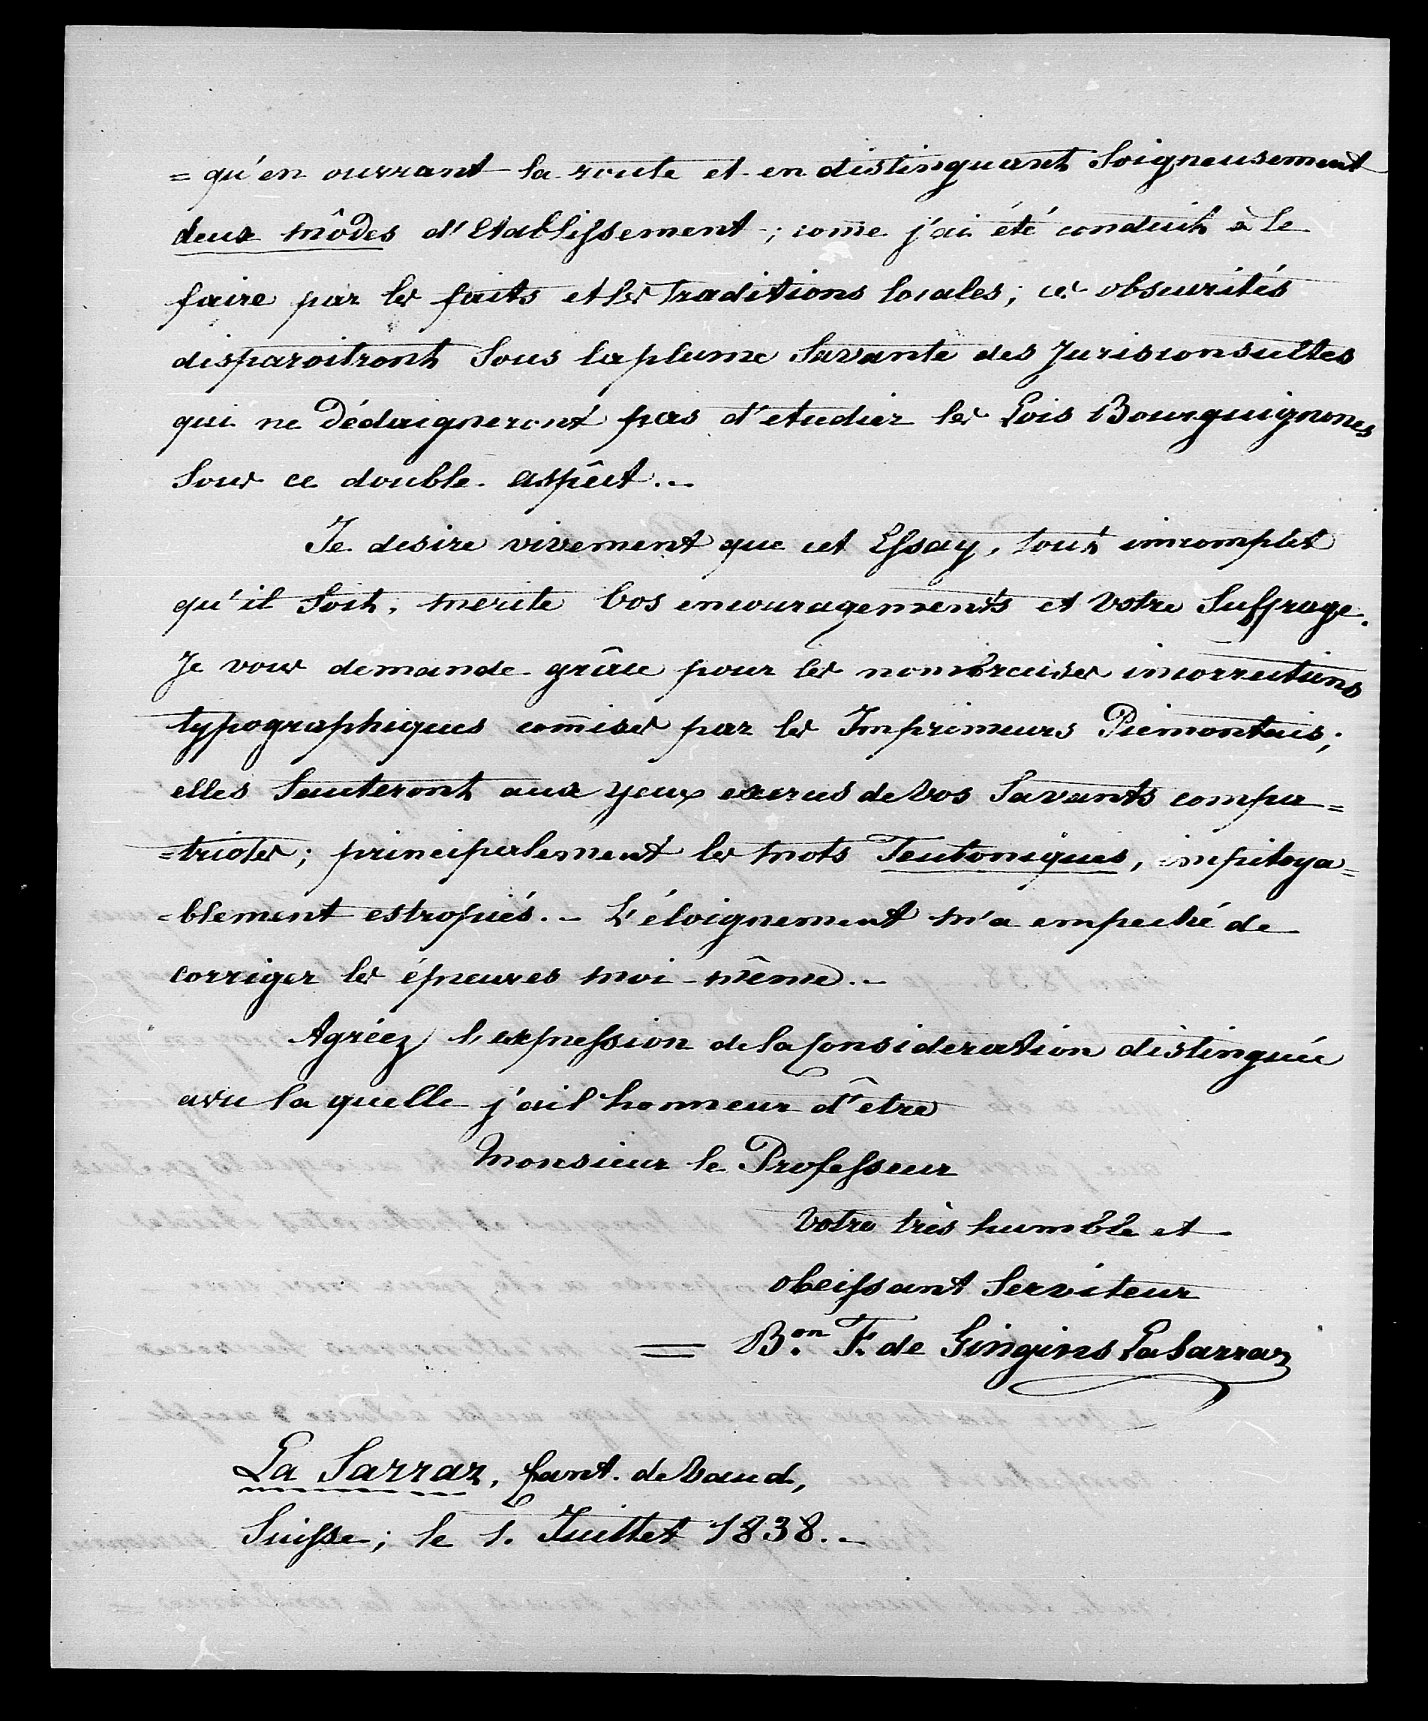 = qu'en ouvrant la route et en distinguant soigneusement
deux môdes d'Etablissement ; come j'ai été conduit à le
faire par les faits et les traditions locales ; ces obscurités
disparoitront sous la plume savante des Jurisconsultes
qui ne dédaigneront pas d'etudier les Lois Bourguignones
sous ce double aspêct. –
Je desire vivement que cet Essay, tout incomplet
qu'il soit, merite vos encouragements et votre suffrage.
Je vous demande grâce pour les nombreuses incorrections
typographiques comises par les Imprimeurs Piemontais ;
elles sauteront aux yeux exercés de vos savants compa=
=triotes ; principalement les mots Teutoniques, impitoya=
=blement estropiés. – L'éloignement m'a empeché de
corriger les épreuves moi-même. –
Agréez l'expression de la Consideration distinguée
avec la quelle j'ai l'honneur d'être
Monsieur le Professeur
Votre très humble et
obeissant serviteur
= B.on F. de Gingins LaSarraz
La Sarraz, Cant. de Vaud,
Suisse ; le 1. Juillet 1838. –